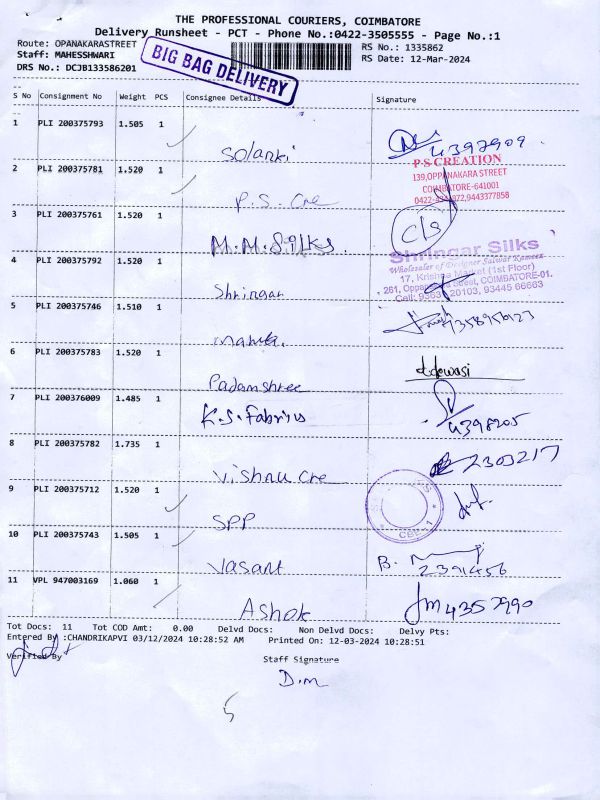 THE PROFESSIONAL COURIERS, COIMBATORE
Delivery Runsheet - PCT - Phone No.:0422-3505555 - Page No.:1
Route: OPANAKARASTREET
Staff: MAHESSHWARI
DRS No.: DCJB133586201
BIG BAG DELIVERY
RS No.: 1335862
RS Date: 12-Mar-2024
S No Consignment No Weight PCS Consignee Details Signature
1 PLI 200375793 1.505 1
Solanki 4397909
2 PLI 200375781 1.520 1
P.S. Cre
P.S CREATION
139,OPPANAKARA STREET
COIMBATORE-641001
3 PLI 200375761 1.520 1
M.M.Silks. cls
4 PLI 200375792 1.520 1
Shringar
Shringar Silks
Wholesaler of Designer Salwar Kameez
17, Krishna Market (1st Floor)
COIMBATORE-01.
20103, 93445 66663
5 PLI 200375746 1.510 1
6 PLI 200375783 1.520 1
Padamshree
7 PLI 200376009 1.485 1
K.S. Fabrius 4398205
8 PLI 200375782 1.735 1
Vishnu Cre 2303217
9 PLI 200375712 1.520 1
SPP
10 PLI 200375743 1.505 1
Vasant B.
2391456
11 VPL 947003169 1.060 1
Ashok 4357990
Tot Docs: 11 Tot COD Amt: 0.00 Delvd Docs: Non Delvd Docs: Delvy Pts:
Entered By :CHANDRIKAPVI 03/12/2024 10:28:52 AM Printed On: 12-03-2024 10:28:51
Verified By
Staff Signature
D.m